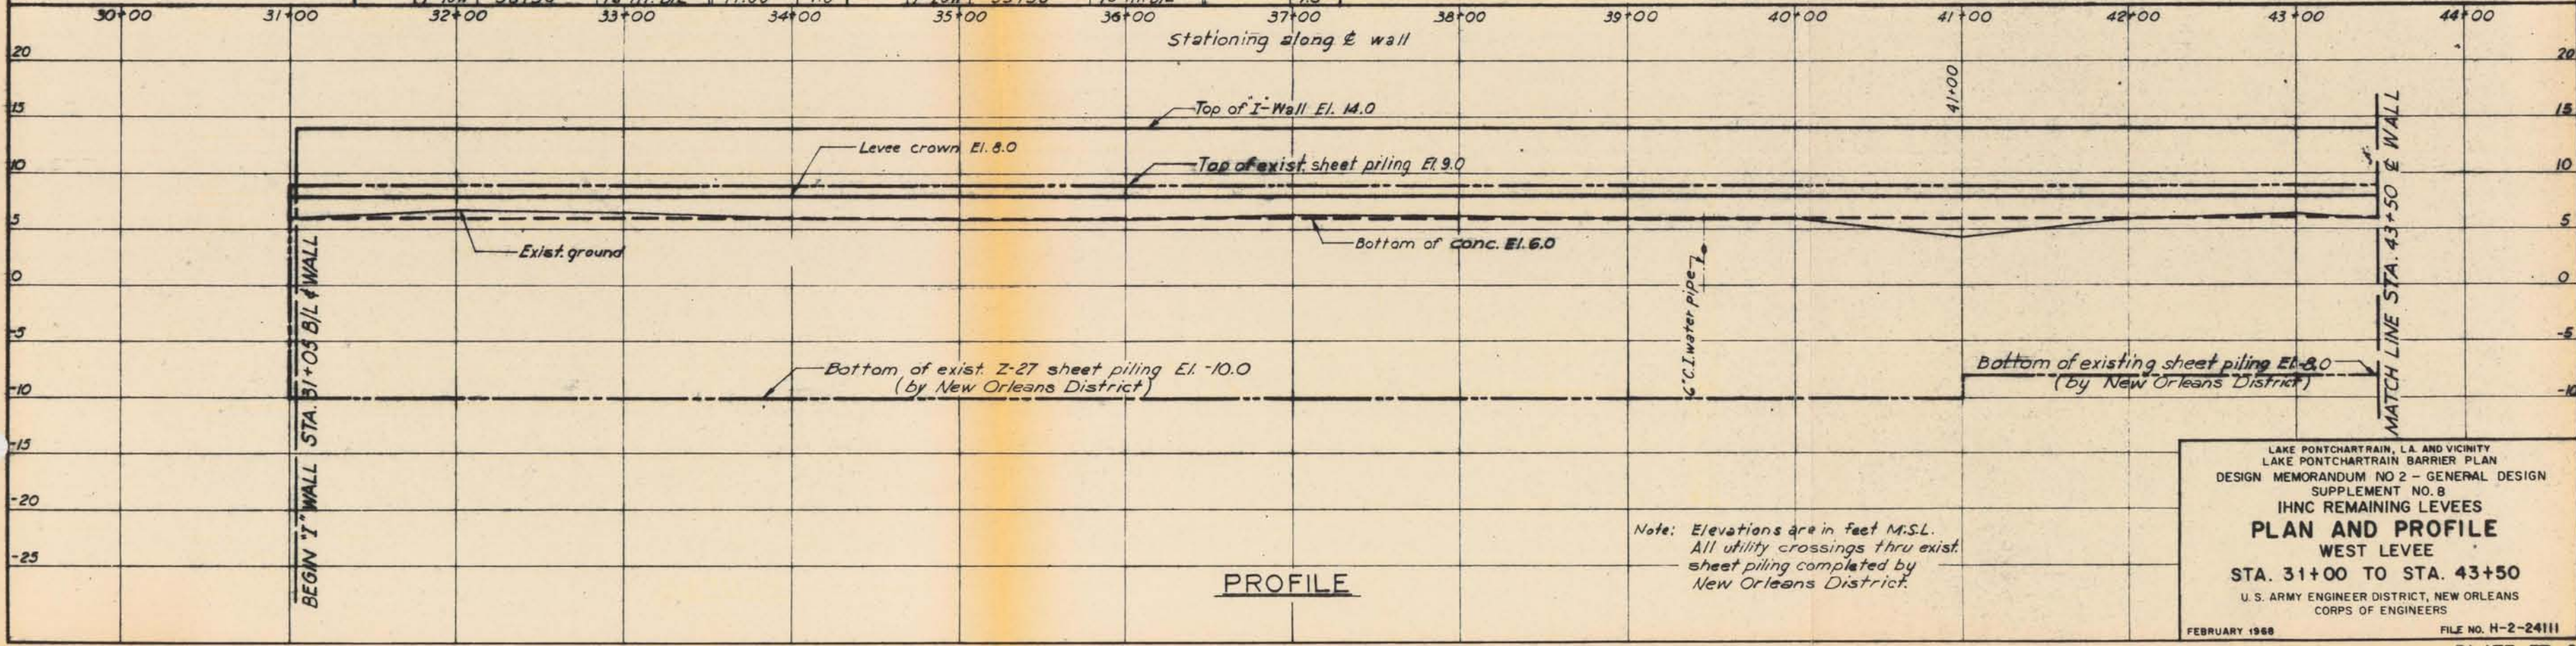 30+00 31+00 32+00 33+00 34+00 35+00 36+00 37+00 38+00 39+00 40+00 41+00 42+00 43+00 44+00
Stationing along ℄ wall
20 20
41+00
15 15
Top of "I"-Wall El. 14.0
Levee crown El. 8.0
10 10
Top of exist. sheet piling El. 9.0
5 5
Exist. ground
Bottom of conc. El. 6.0
0 0
-5 -5
6" C.I. water pipe
Bottom of exist. Z-27 sheet piling El. -10.0
(by New Orleans District)
Bottom of existing sheet piling El. -8.0
(by New Orleans District)
-10 -10
-15
-20
-25
BEGIN "I" WALL STA. 31+05 B/L ℄ WALL
MATCH LINE STA. 43+50 ℄ WALL
Note: Elevations are in feet M.S.L.
All utility crossings thru exist.
sheet piling completed by
New Orleans District.
PROFILE
LAKE PONTCHARTRAIN, LA. AND VICINITY
LAKE PONTCHARTRAIN BARRIER PLAN
DESIGN MEMORANDUM NO 2 - GENERAL DESIGN
SUPPLEMENT NO. 8
IHNC REMAINING LEVEES
PLAN AND PROFILE
WEST LEVEE
STA. 31+00 TO STA. 43+50
U. S. ARMY ENGINEER DISTRICT, NEW ORLEANS
CORPS OF ENGINEERS
FEBRUARY 1968 FILE NO. H-2-24111